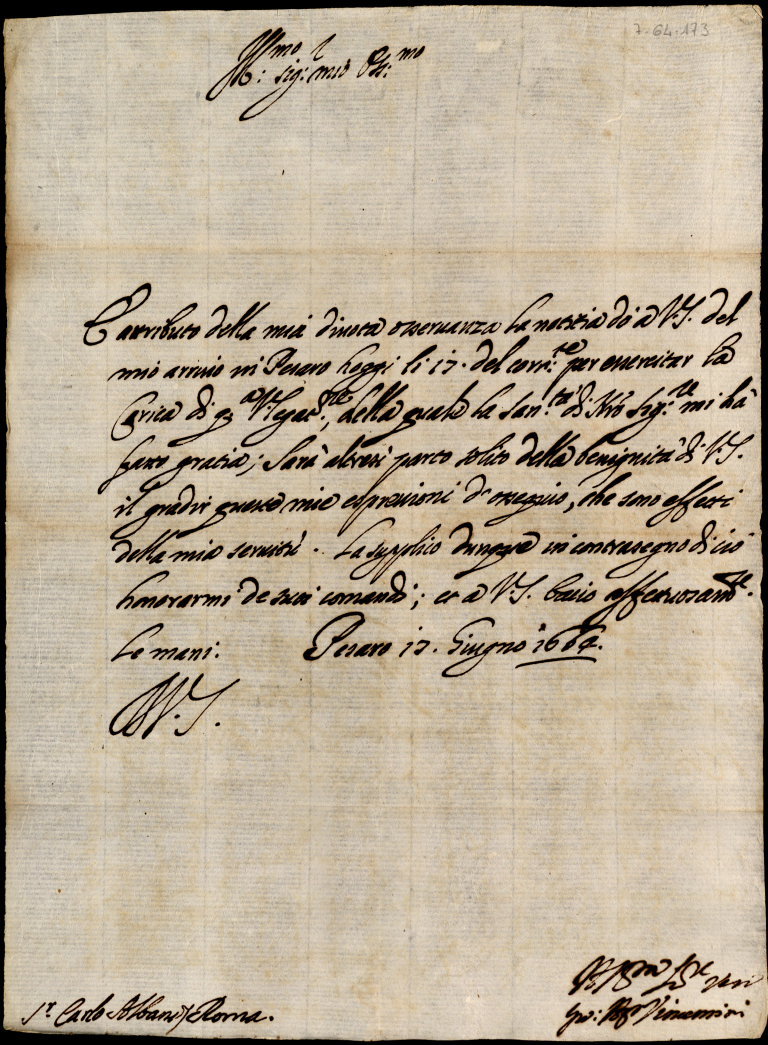 7-64-173
Ill:mo
sig: mio Oss:mo
È attributo della mia divota osservanza la notitia do à V.S. del
mio arrivo in Pesaro hoggi li 17. del corr:te per essercitar la
Carica di q.a V.legat:ne, della quale la San:tà di N'ro Sig:re mi hà
fatto gratia; Sarà altresì parto solito della benignità di V.S.
il gradir queste mie espressioni d'ossequio, che sono effetti
della mia servitù. La supplico dunque in contrasegno di ciò
honorarmi de suoi comandi; et a V.S. bacio affettuosam:te
le mani. Pesaro 17. Giugno 1664.
D V.S.
S.r Carlo Albani Roma.